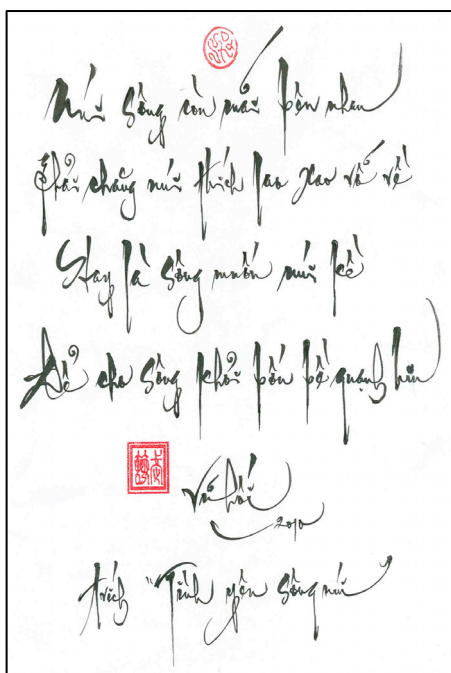 Núi sông còn mãi bên nhau
Phải chăng núi thích lao xao vỗ về
Hay là sông muốn núi kề
Để cho sông khỏi bốn bề quạnh hiu
Vũ Hối
2010
trích "Tình yêu sông núi"